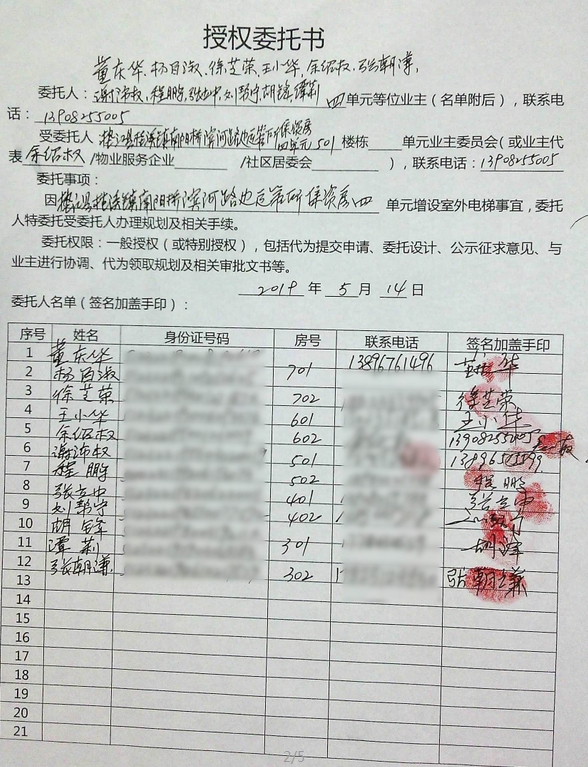 授权委托书
董庆华、杨百淑、徐芝荣、王小华、余绍权、张朝谦、
委托人：谢沛权、程鹏、张立中、刘帮宁、胡锋、谭莉 四 单元等位业主（名单附后），联系电
话：13908255005
受委托人 南阳桥滨河路 四单元501 楼栋 单元业主委员会（或业主代
表 余绍权 /物业服务企业 /社区居委会 ），联系电话：13908255005
委托事项：
因 镇南阳桥滨河路 四 单元增设室外电梯事宜，委托
人特委托受委托人办理规划及相关手续。
委托权限：一般授权（或特别授权），包括代为提交申请、委托设计、公示征求意见、与
业主进行协调、代为领取规划及相关审批文书等。
2019 年 5 月 14 日
委托人名单（签名加盖手印）：
序号 姓名 身份证号码 房号 联系电话 签名加盖手印
1 董庆华 13896761496
2 杨百淑 701
3 徐芝荣 702 徐芝荣
4 王小华 601 王小华
5 余绍权 602 13908255005
6 谢沛权 501
7 程鹏 502 程鹏
8 张立中 401 张立中
9 刘帮宁 402
10 胡锋 301 胡锋
11 谭莉
12 张朝谦 302 张朝谦
13
14
15
16
17
18
19
20
21
2/5